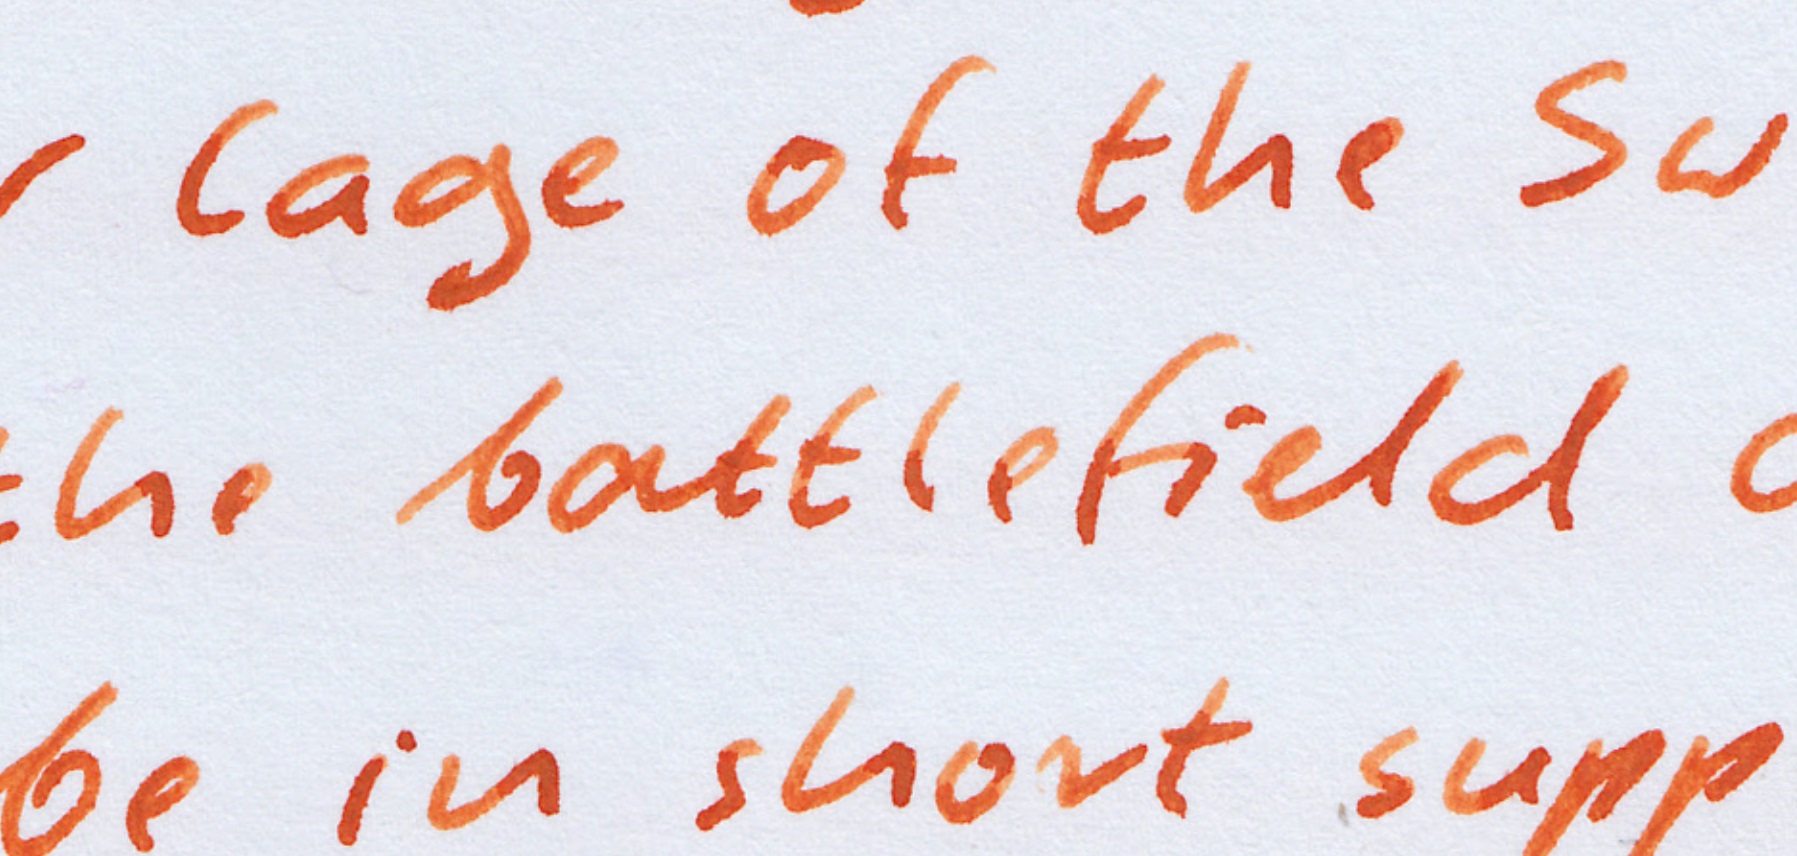 Cage of the Sw
the battlefield
be in short supp